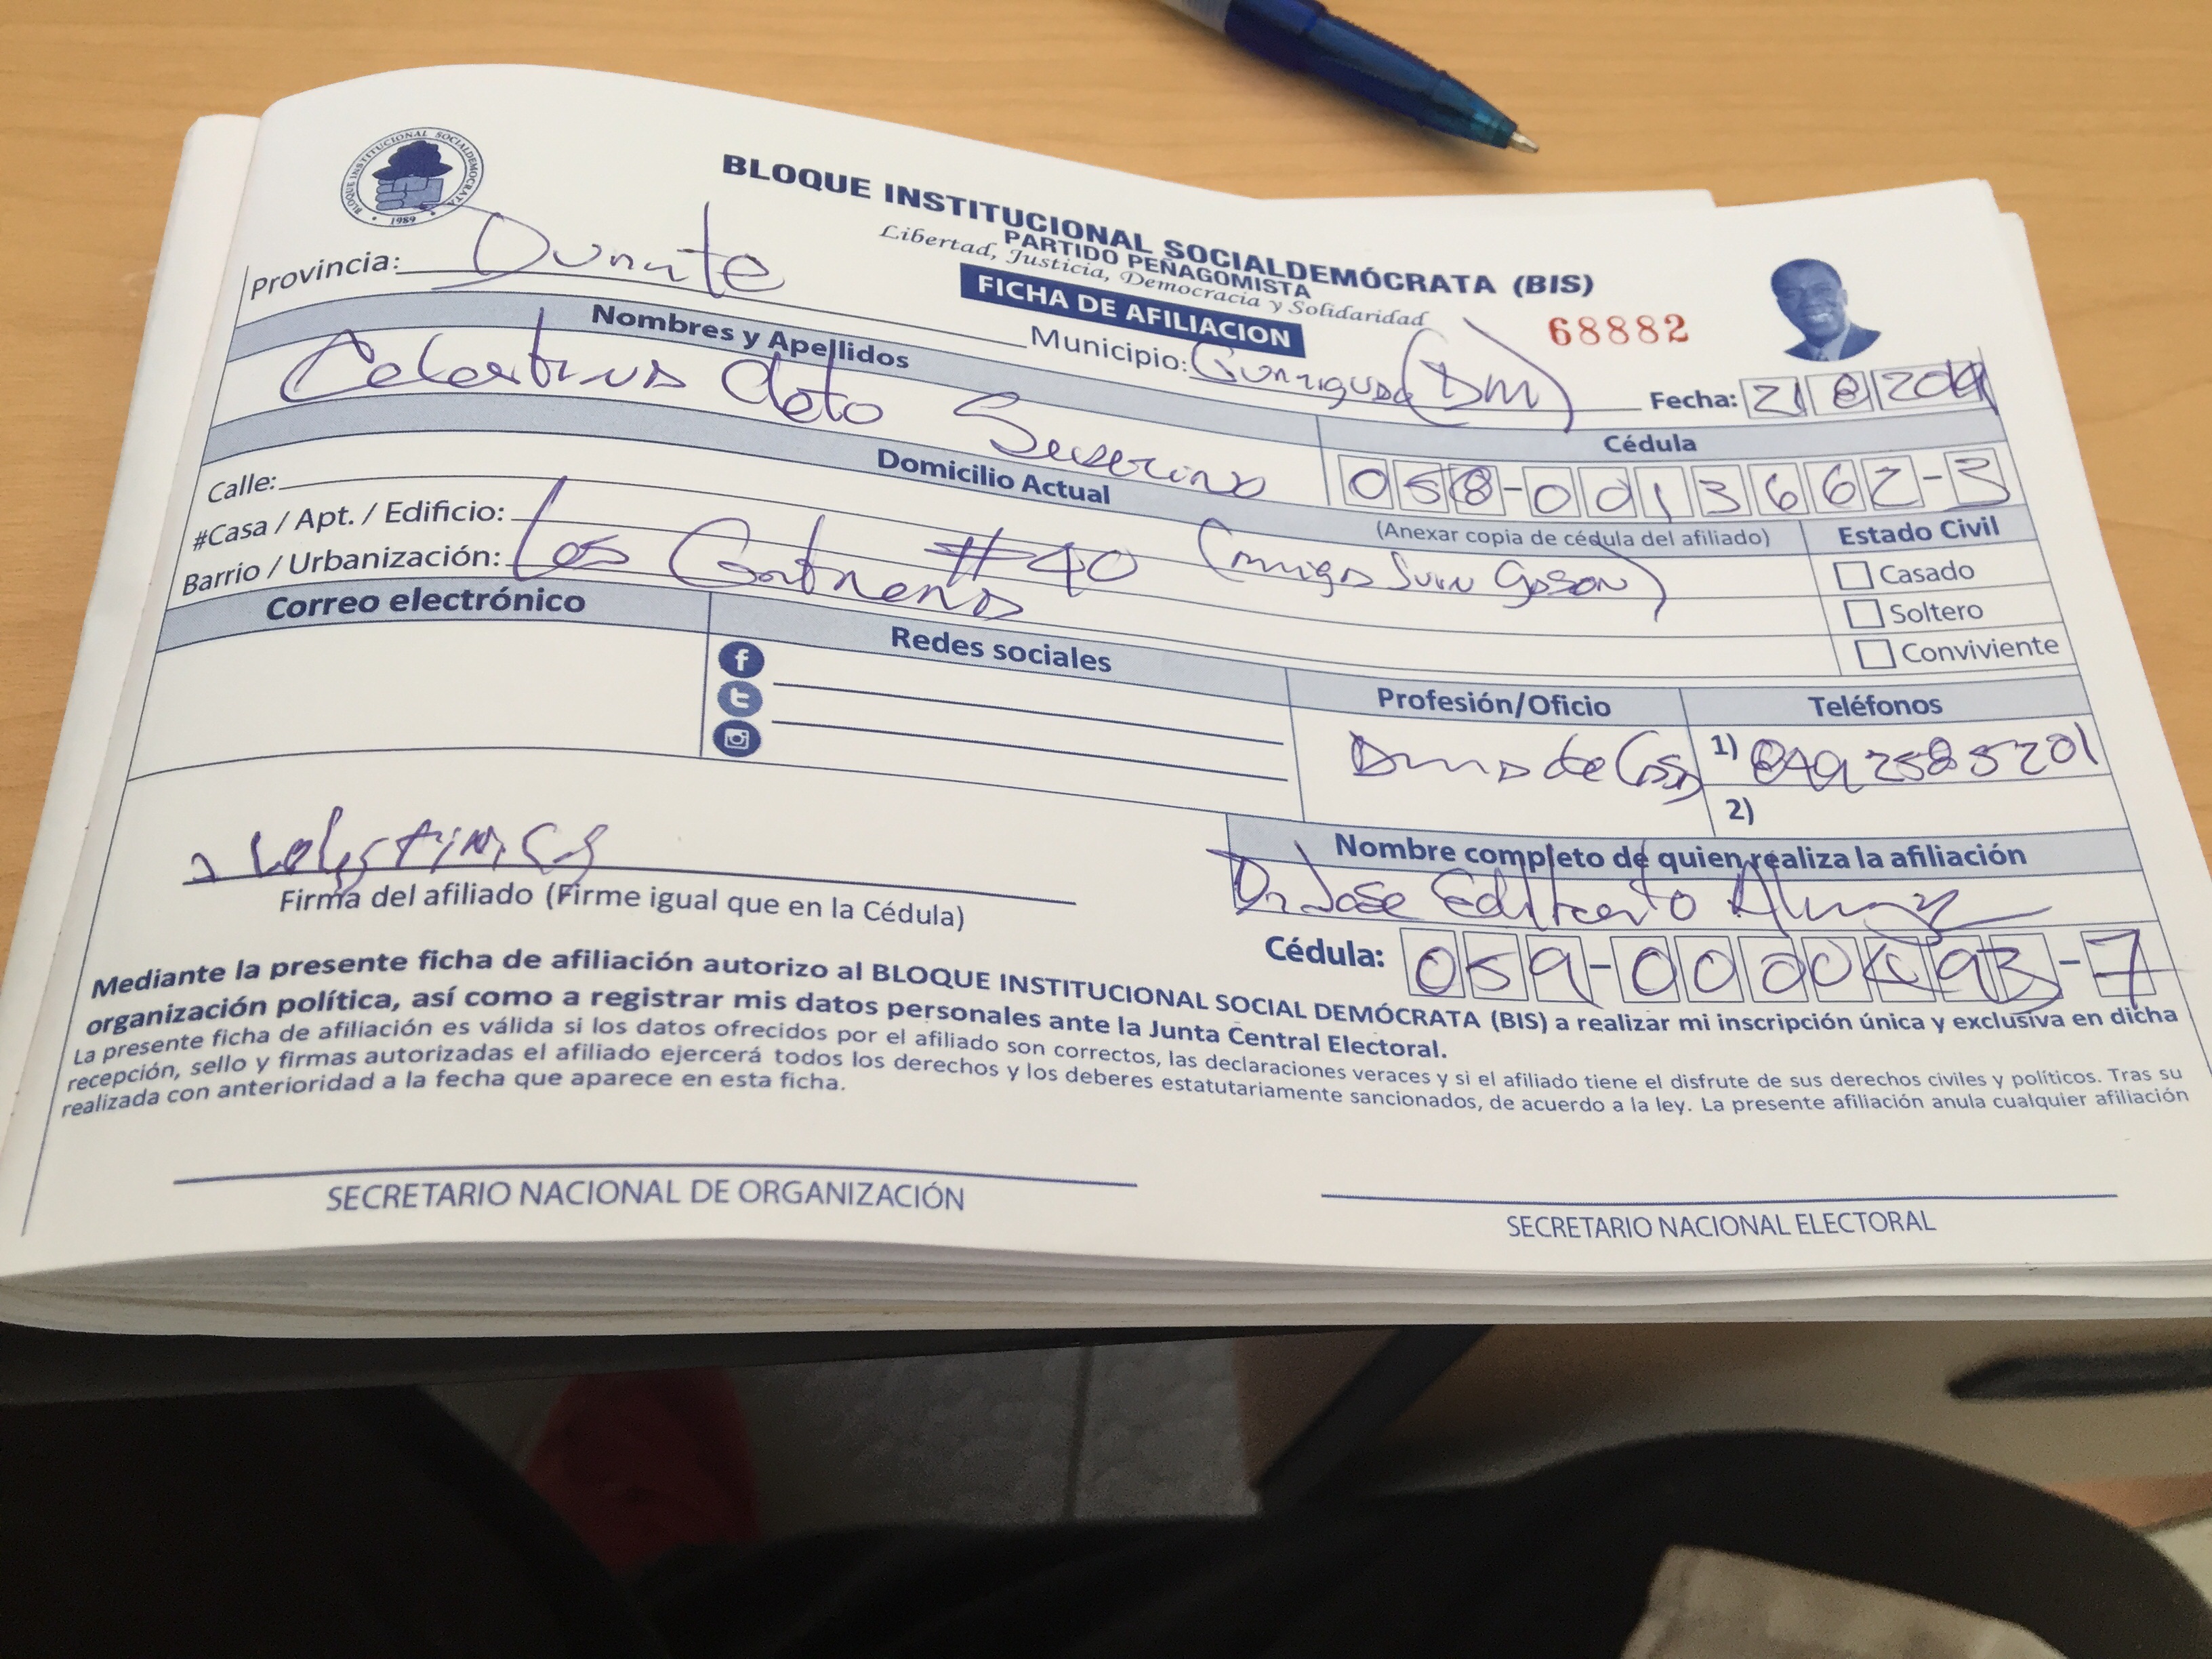 BLOQUE INSTITUCIONAL SOCIALDEMOCRATA
1989
BLOQUE INSTITUCIONAL SOCIALDEMÓCRATA (BIS)
PARTIDO PEÑAGOMISTA
Libertad, Justicia, Democracia y Solidaridad
FICHA DE AFILIACION
68882
Provincia: Duarte
Municipio: (DM)
Fecha: 21 8 2019
Nombres y Apellidos
Celestina Severino
Cédula
058-0013662-3
(Anexar copia de cédula del afiliado)
Domicilio Actual
Calle:
#Casa / Apt. / Edificio: #40
Barrio / Urbanización: Los
Estado Civil
Casado
Soltero
Conviviente
Correo electrónico
Redes sociales
Profesión/Oficio
de Casa
Teléfonos
1) 849 258 5201
2)
Firma del afiliado (Firme igual que en la Cédula)
Nombre completo de quien realiza la afiliación
Dr Jose Edilberto
Cédula: 059-0000 93-7
Mediante la presente ficha de afiliación autorizo al BLOQUE INSTITUCIONAL SOCIAL DEMÓCRATA (BIS) a realizar mi inscripción única y exclusiva en dicha
organización política, así como a registrar mis datos personales ante la Junta Central Electoral.
La presente ficha de afiliación es válida si los datos ofrecidos por el afiliado son correctos, las declaraciones veraces y si el afiliado tiene el disfrute de sus derechos civiles y políticos. Tras su
recepción, sello y firmas autorizadas el afiliado ejercerá todos los derechos y los deberes estatutariamente sancionados, de acuerdo a la ley. La presente afiliación anula cualquier afiliación
realizada con anterioridad a la fecha que aparece en esta ficha.
SECRETARIO NACIONAL DE ORGANIZACIÓN
SECRETARIO NACIONAL ELECTORAL